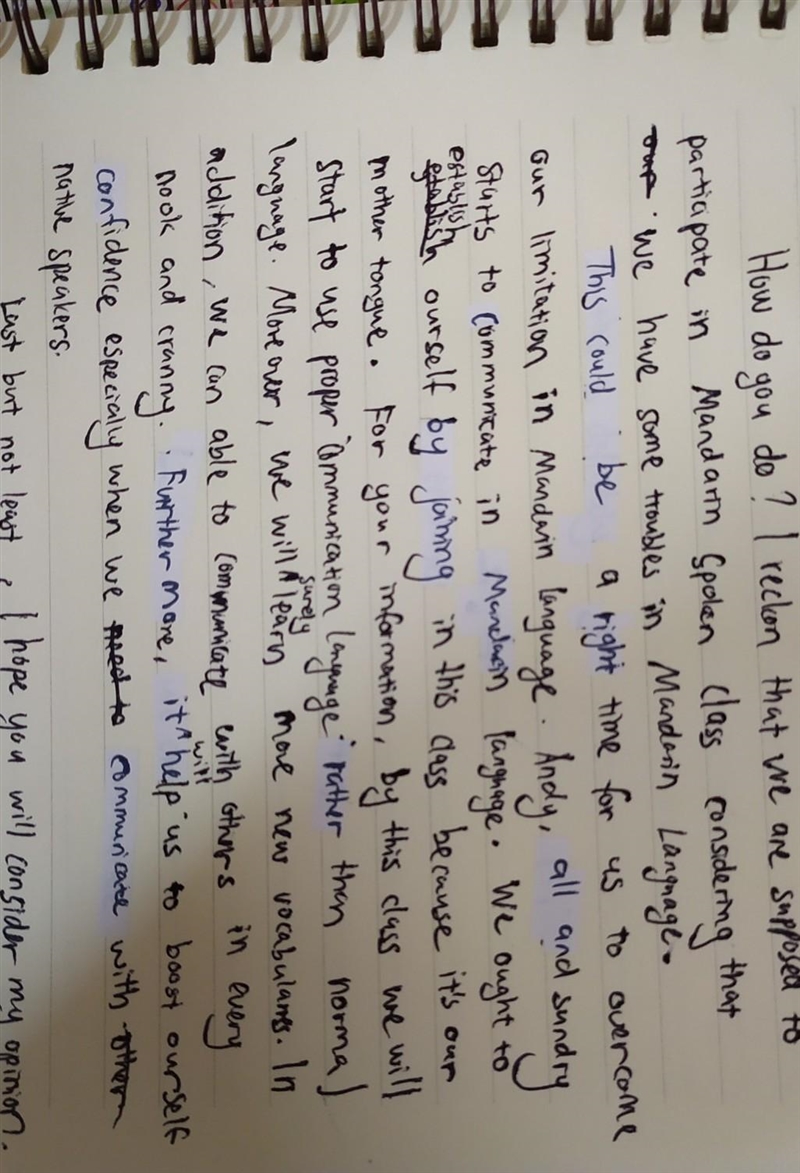 How do you do? I reckon that we are supposed to
participate in Mandarin Spoken class considering that
we have some troubles in Mandarin Language.
This could be a right time for us to overcome
our limitation in Mandarin language. Andy, all and sundry
starts to communicate in Mandarin language. We ought to
establish ourself by joining in this class because it's our
mother tongue. For your information, by this class we will
start to use proper communication language rather than normal
language. Moreover, we will surely learn more new vocabulary. In
addition, we can able to communicate with others in every
nook and cranny. Further more, it will help us to boost ourself
confidence especially when we communicate with
native speakers.
Last but not least, I hope you will consider my opinion.